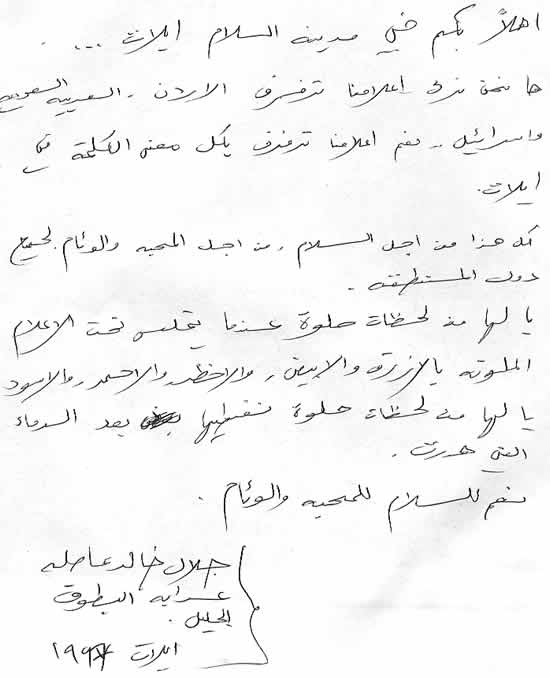 اهلاً بكم في مدينة السلام ايلات ....
ها نحن نرى اعلامنا ترفرف الاردن . السعوديه
واسرائيل .. نعم اعلامنا ترفرف بكل معنى الكلمة في
ايلات.
كل هذا من اجل السلام . من اجل المحبه والوئام لجميع
دول المنطقه .
يا لها من لحظات حلوة عندما يجلس تحت الاعلام
الملونه بالازرق والابيض . والاخظر والاحمر . والاسود
يا لها من لحظات حلوة نقضيها بعد الدماء
التي هدرت .
نعم للسلام للمحبه والوئام .
جلال خالد عاصله
عرابه البطوف
الجليل .
ايلات ١٩٩٤